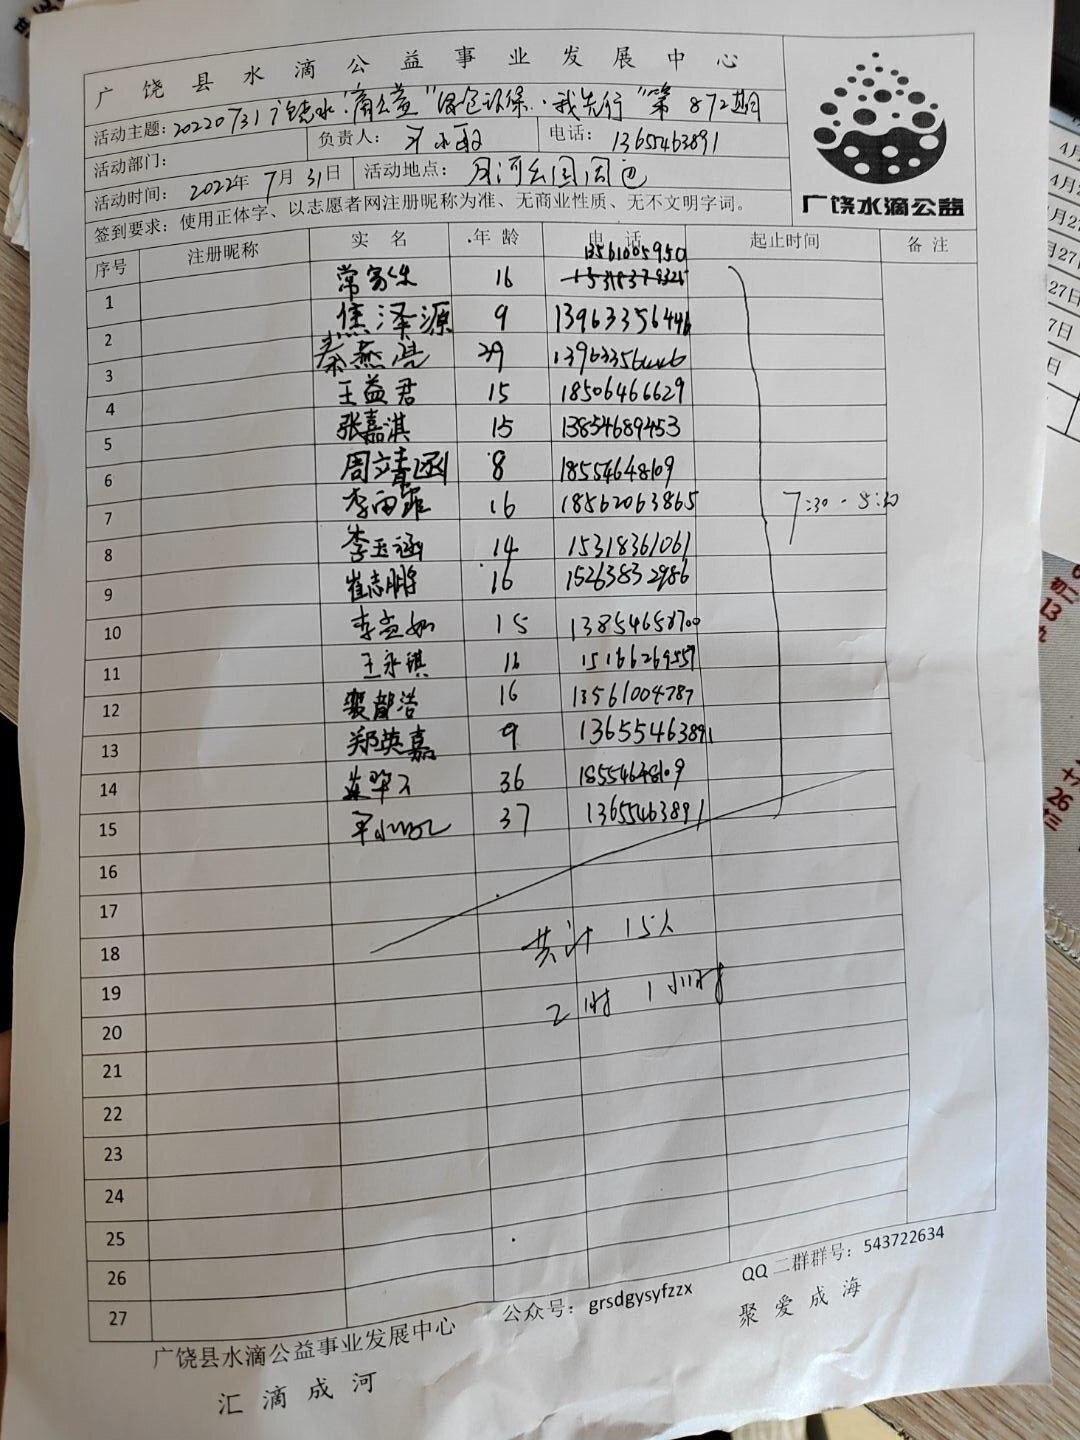 广饶县水滴公益事业发展中心
活动主题：20220731广饶水滴公益"绿色环保·我先行"第872期
活动部门： 负责人： 电话：13655463891
活动时间：2022年7月31日 活动地点：月河公园周边
签到要求：使用正体字、以志愿者网注册昵称为准、无商业性质、无不文明字词。
广饶水滴公益
序号 注册昵称 实名 年龄 电话 起止时间 备注
13561005950
1 16
2 焦泽源 9 13963356446
3 秦燕亮 29 13963356446
4 王益君 15 18506466629
5 张嘉淇 15 13854689453
6 周靖函 8 18554648109
7 李雨霏 16 18562063865 7:30-8:30
8 李玉涵 14 15318361061
9 崔志鹏 16 15263832986
10 李宣如 15 13854658700
11 王永琪 16 15166269557
12 裴懿浩 16 13561004787
13 郑英嘉 9 13655463891
14 36 18554648109
15 37 13655463891
16
17
18 共计 15人
19
20 2时 1小时
21
22
23
24
25
26
27
广饶县水滴公益事业发展中心 公众号：grsdgysyfzzx QQ二群群号：543722634
汇滴成河 聚爱成海